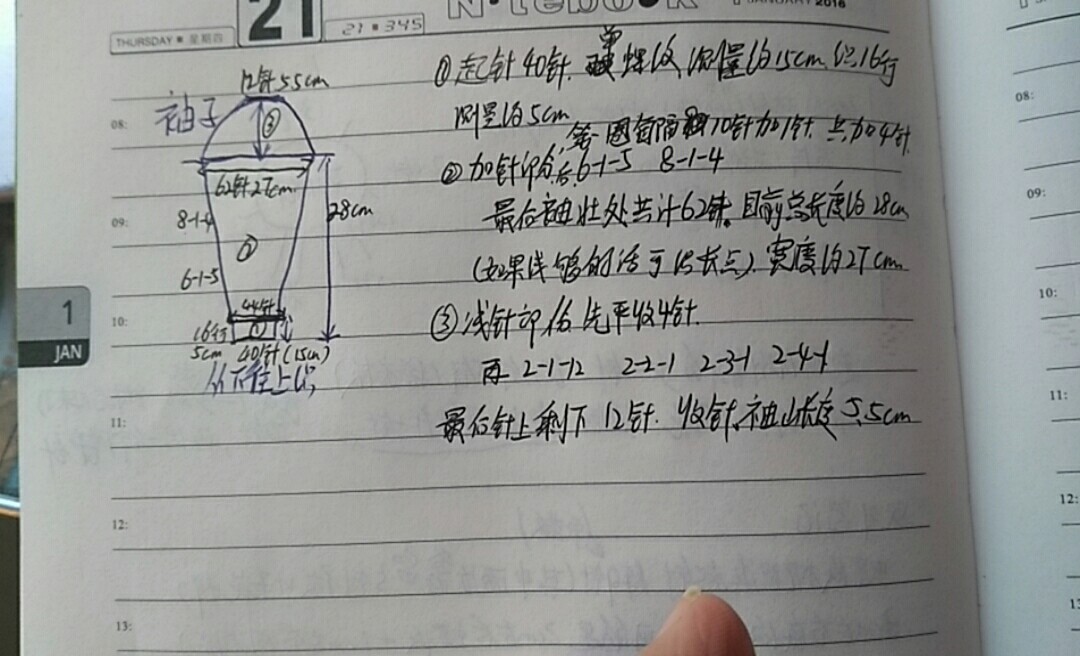 THURSDAY ■ 星期四
21
21 ■ 345
JANUARY 2016
1
JAN
08:
09:
10:
11:
12:
13:
袖子
12针5.5cm
③
62针27cm
28cm
8-1-4
②
6-1-5
44针
16行
①
5cm 40针(15cm)
从下往上织
①起针40针.单螺纹,测量约15cm,织16行
测量约5cm
第一圈每隔10针加1针.共加4针.
②加针部分:后6-1-5 8-1-4
最后袖壮处共计62针.目前总长度约28cm
(如果线够的话可以长点).宽度约27cm.
③减针部位 先平收4针.
再 2-1-12 2-2-1 2-3-1 2-4-1
最后针上剩下12针.收针.袖山长度5.5cm
08:
09:
10:
11:
12: